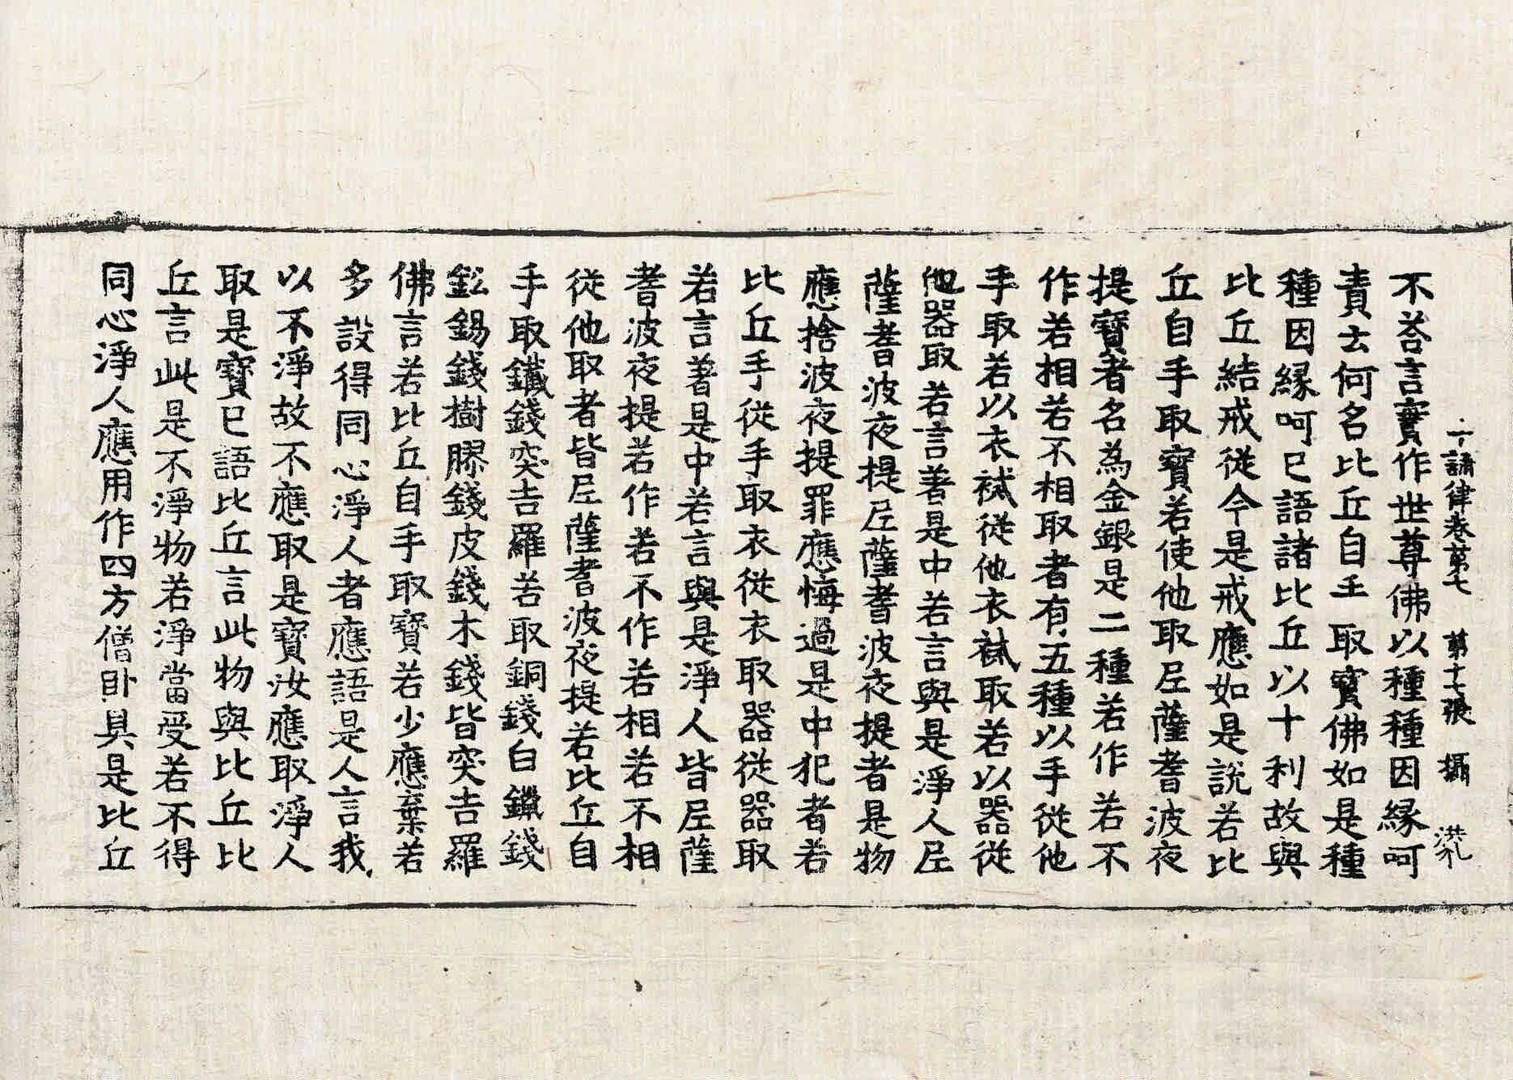 十誦律卷第七 第十七張 攝
不荅言實作世尊佛以種種因緣呵
責去何名比丘自手取寶佛如是種
種因緣呵已語諸比丘以十利故與
比丘結戒從今是戒應如是說若比
丘自手取寶若使他取尼薩耆波夜
提寶者名為金銀是二種若作若不
作若相若不相取者有五種以手從他
手取若以衣裓從他衣裓取若以器從
他器取若言著是中若言與是淨人尼
薩耆波夜提尼薩耆波夜提者是物
應捨波夜提罪應悔過是中犯者若
比丘手從手取衣從衣取器從器取
若言著是中若言與是淨人皆尼薩
耆波夜提若作若不作若相若不相
從他取者皆尼薩耆波夜提若比丘自
手取鐵錢突吉羅若取銅錢白鑞錢
鉛錫錢樹膠錢皮錢木錢皆突吉羅
佛言若比丘自手取寶若少應棄若
多設得同心淨人者應語是人言我
以不淨故不應取是寶汝應取淨人
取是寶已語比丘言此物與比丘比
丘言此是不淨物若淨當受若不得
同心淨人應用作四方僧臥具是比丘